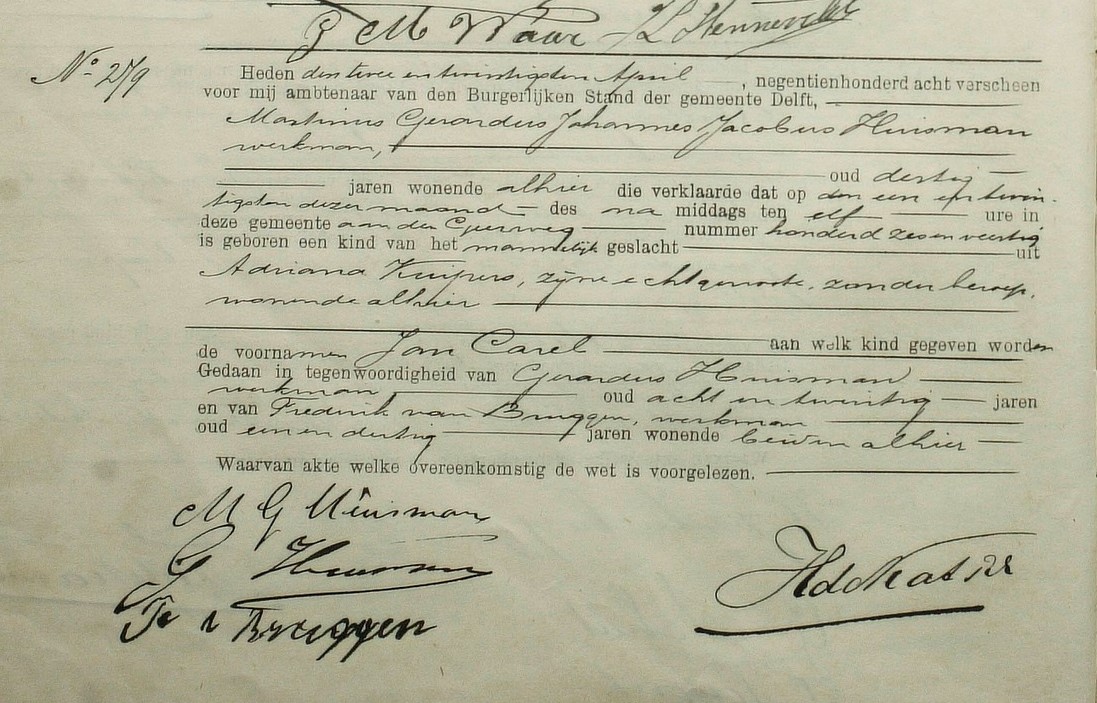 G M Waar
Nº 219
Heden den twee en twintigsten April, negentienhonderd acht verscheen
voor mij ambtenaar van den Burgerlijken Stand der gemeente Delft,
Martinus Gerardus Johannes Jacobus Huisman
werkman,
oud dertig
jaren wonende alhier die verklaarde dat op den een en twin-
tigsten dezer maand des na middags ten elf ure in
deze gemeente aan den nummer honderd zes en veertig
is geboren een kind van het mannelijk geslacht uit
Adriana Kuijpers, zijne echtgenoote, zonder beroep,
wonende alhier
de voornamen Jan Carel aan welk kind gegeven worden
Gedaan in tegenwoordigheid van Gerardus Huisman
werkman oud acht en twintig jaren
en van Frederik van Bruggen, werkman
oud een en dertig jaren wonende beiden alhier
Waarvan akte welke overeenkomstig de wet is voorgelezen.
M G Huisman
G Huisman
Fr v Bruggen